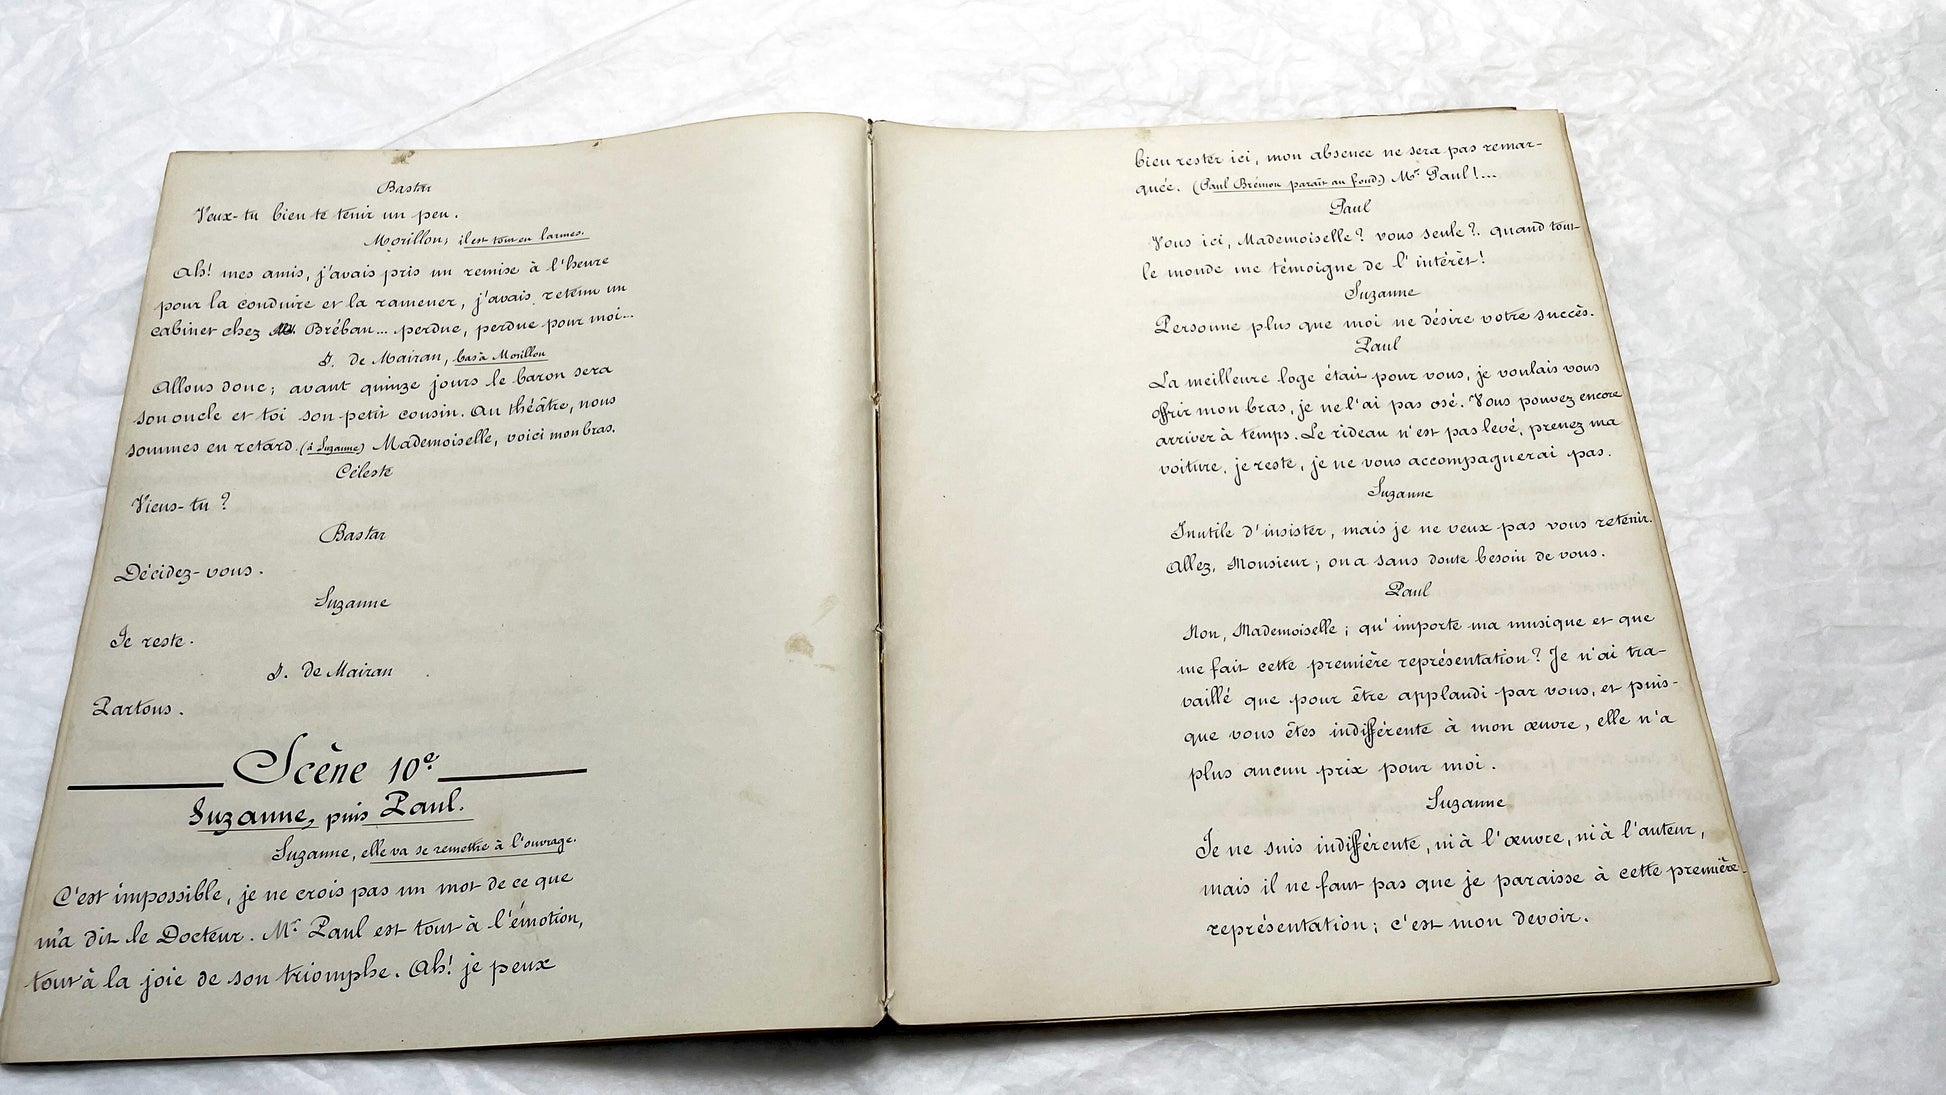 Bastar
Veux-tu bien te tenir un peu.
Morillon, il est tout en larmes.
Ah! mes amis, j'avais pris un remise à l'heure
pour la conduire et la ramener, j'avais retenu un
cabinet chez Bréban... perdue, perdue pour moi...
J. de Mairan, bas à Morillon
Allons donc; avant quinze jours le baron sera
son oncle et toi son petit cousin. Au théâtre, nous
sommes en retard. (à Suzanne) Mademoiselle, voici mon bras.
Céleste
Viens-tu ?
Bastar
Décidez-vous.
Suzanne
Je reste.
J. de Mairan
Partons.
Scène 10e
Suzanne, puis Paul.
Suzanne, elle va se remettre à l'ouvrage.
C'est impossible, je ne crois pas un mot de ce que
m'a dit le Docteur. Mr Paul est tout à l'émotion,
tout à la joie de son triomphe. Ah! je peux
bien rester ici, mon absence ne sera pas remar-
quée. (Paul Brémon paraît au fond) Mr Paul!...
Paul
Vous ici, Mademoiselle? vous seule?. quand tout
le monde me témoigne de l'intérêt!
Suzanne
Personne plus que moi ne désire votre succès.
Paul
La meilleure loge était pour vous, je voulais vous
offrir mon bras, je ne l'ai pas osé. Vous pouvez encore
arriver à temps. Le rideau n'est pas levé, prenez ma
voiture, je reste, je ne vous accompagnerai pas.
Suzanne
Inutile d'insister, mais je ne veux pas vous retenir.
Allez, Monsieur; on a sans doute besoin de vous.
Paul
Non, Mademoiselle; qu'importe ma musique et que
me fait cette première représentation? Je n'ai tra-
vaillé que pour être applaudi par vous, et puis-
que vous êtes indifférente à mon œuvre, elle n'a
plus aucun prix pour moi.
Suzanne
Je ne suis indifférente, ni à l'œuvre, ni à l'auteur,
mais il ne faut pas que je paraisse à cette première
représentation; c'est mon devoir.